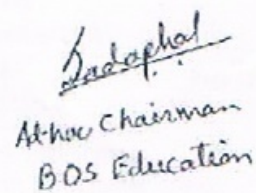 Sadaphal
Ad-hoc Chairman
BOS Education